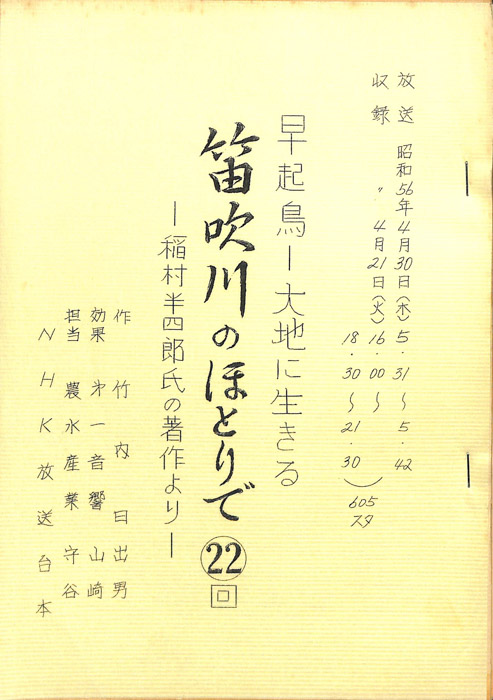 放送 昭和56年4月30日(木) 5.31～5.42
収録 〃 4月21日(火) 16.00～
18.30～21.30)
605スタ
早起鳥ー大地に生きる
笛吹川のほとりで㉒回
ー稲村半四郎氏の著作よりー
作 竹内日出男
効果 第一音響 山崎
担当 農水産業 守谷
NHK放送台本